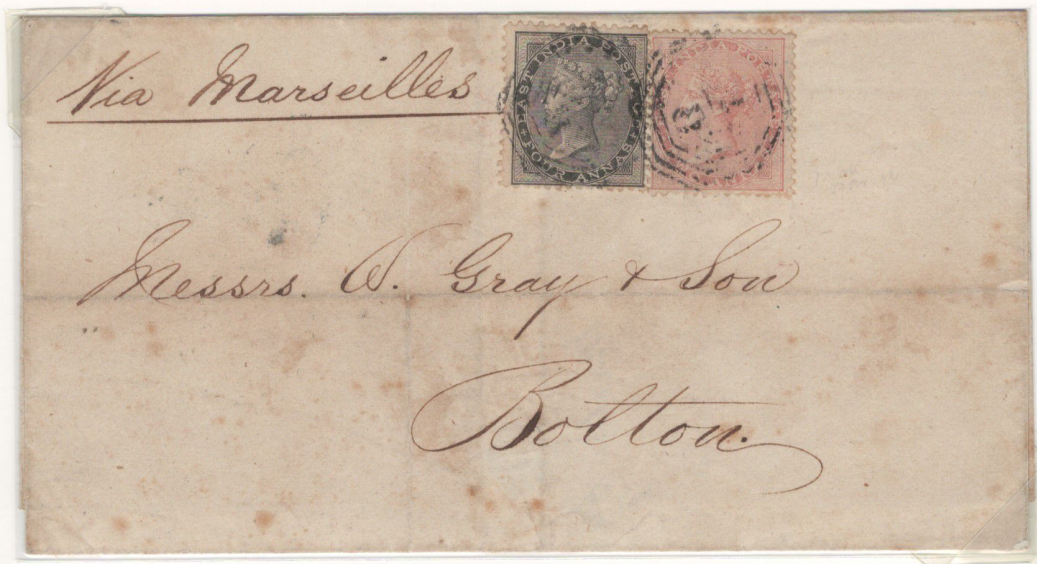 Via Marseilles
EAST INDIA POSTAGE
FOUR ANNAS
INDIA
B
1
Messrs. W. Gray & Son
Bolton.